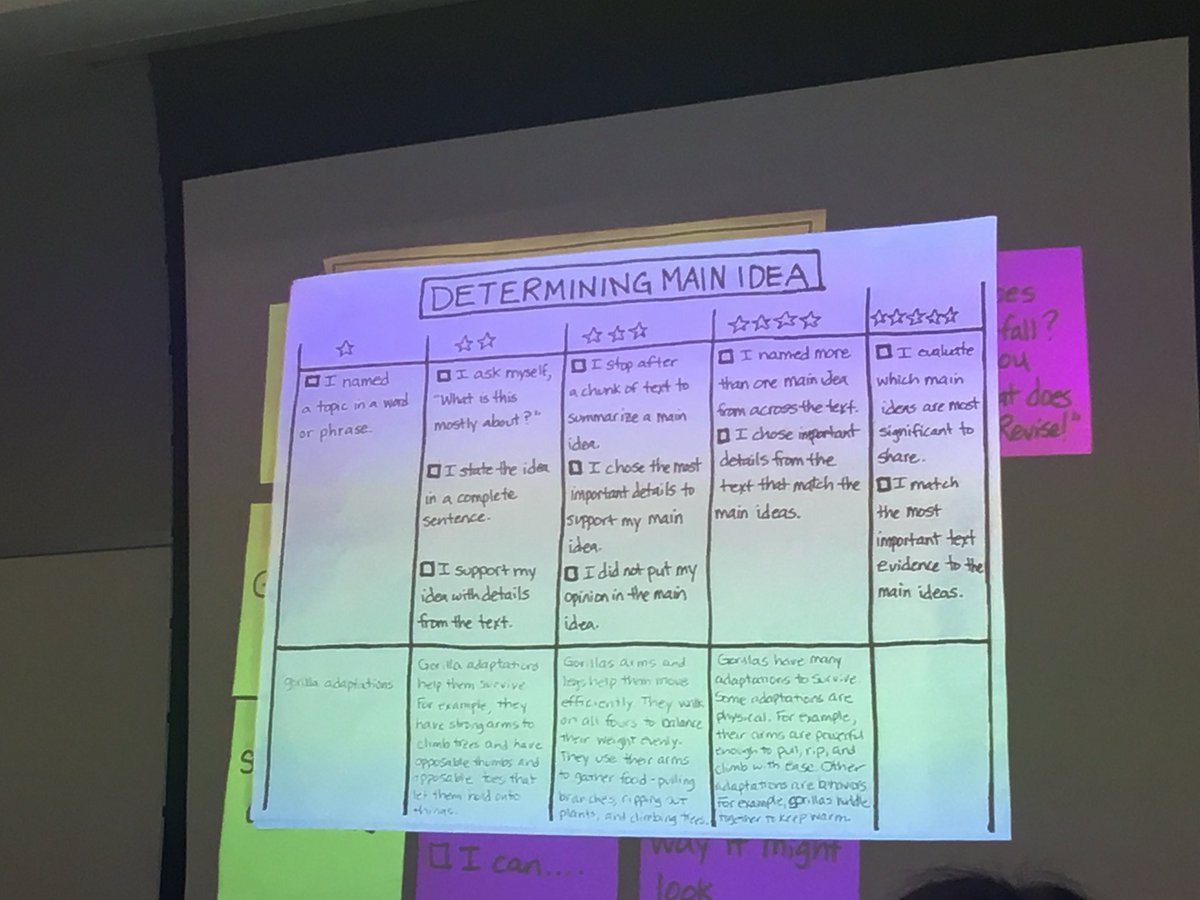 DETERMINING MAIN IDEA
I named
a topic in a word
or phrase.
I ask myself,
"What is this
mostly about?"
I state the idea
in a complete
sentence.
I support my
idea with details
from the text.
I stop after
a chunk of text to
summarize a main
idea.
I chose the most
important details to
support my main
idea.
I did not put my
opinion in the main
idea.
I named more
than one main idea
from across the text.
I chose important
details from the
text that match the
main ideas.
I evaluate
which main
ideas are most
significant to
share.
I match
the most
important text
evidence to the
main ideas.
gorilla adaptations
Gorilla adaptations
help them survive
For example, they
have strong arms to
climb trees and have
opposable thumbs and
opposable toes that
let them hold onto
things.
Gorillas arms and
legs help them move
efficiently. They walk
on all fours to balance
their weight evenly.
They use their arms
to gather food - pulling
branches, ripping out
plants, and climbing trees.
Gorillas have many
adaptations to survive.
Some adaptations are
physical. For example,
their arms are powerful
enough to pull, rip, and
climb with ease. Other
adaptations are behaviors.
For example, gorillas huddle
together to keep warm.
fall?
does
Revise!"
I can....
way it might
look